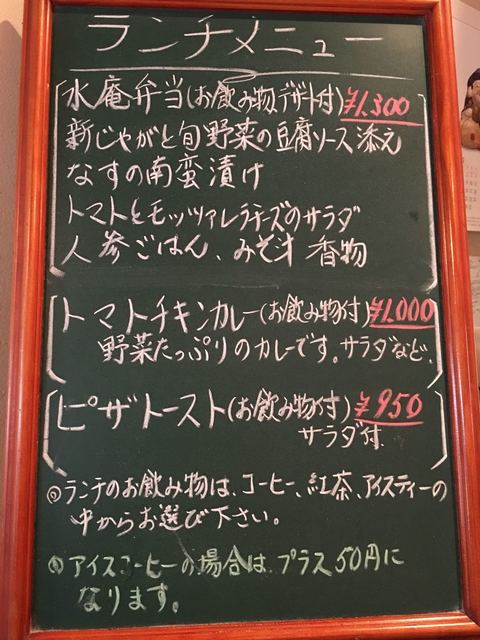 ランチメニュー
水庵弁当(お飲み物デザート付)¥1,300
新じゃがと旬野菜の豆腐ソース添え
なすの南蛮漬け
トマトとモッツァレラチーズのサラダ
人参ごはん、みそ汁 香物
トマトチキンカレー(お飲み物付)¥1,000
野菜たっぷりのカレーです。サラダなど、
ピザトースト(お飲み物付)¥950
サラダ付
◎ランチのお飲み物は、コーヒー、紅茶、アイスティーの
中からお選び下さい。
◎アイスコーヒーの場合は、プラス50円に
なります。